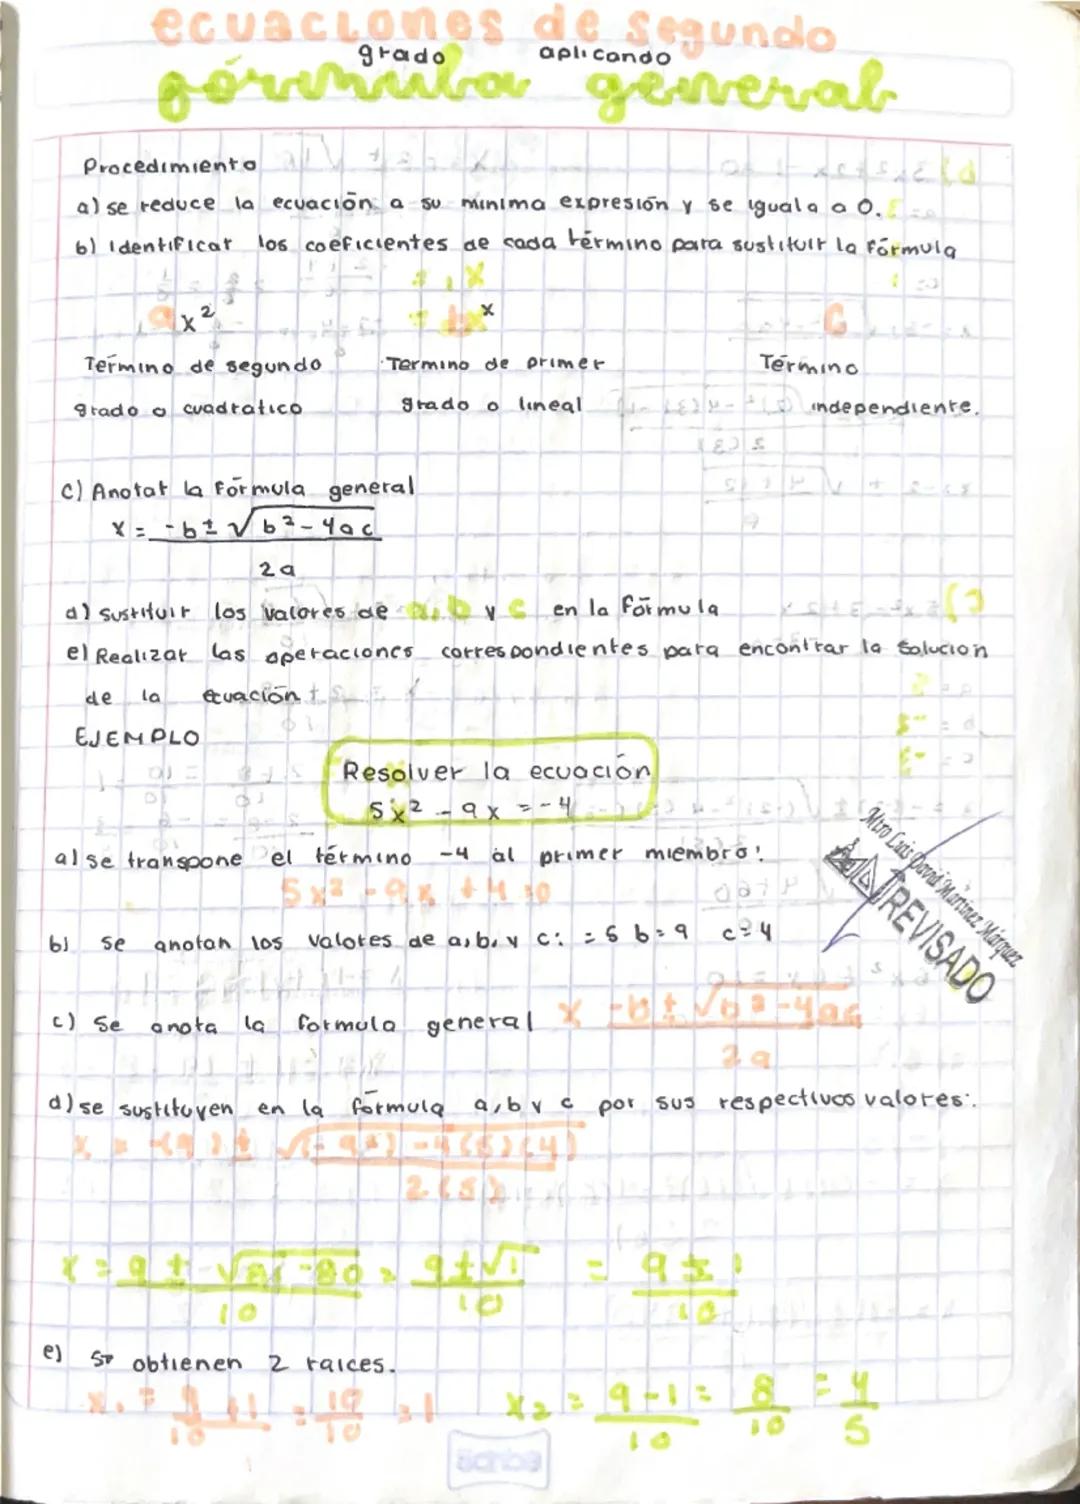 ecuaciones de segundo
grado aplicando
fórmula general
Procedimiento
a) se reduce la ecuación a su mínima expresión y se iguala a 0.
b) Identificar los coeficientes de cada término para sustituir la fórmula
ax² bx C
Término de segundo Termino de primer Término
grado o cuadratico grado o lineal independiente.
c) Anotar la fórmula general
x = -b ± √b² - 4ac
2a
d) sustituir los valores de a, b y c en la fórmula
e) Realizar las operaciones correspondientes para encontrar la solucion
de la ecuación
EJEMPLO
Resolver la ecuación
5x² - 9x = -4
a) se transpone el término -4 al primer miembro:
5x² - 9x + 4 = 0
Mtro Luis David Martínez Márquez
REVISADO
b) se anotan los valores de a, b, y c: = 5 b = 9 c = 4
c) Se anota la formula general x -b ± √b² - 4ac
2a
d) se sustituyen en la fórmula a, b y c por sus respectivos valores:
x = -(9) ± √(-9²) - 4(5)(4)
2(5)
x = 9 ± √81 - 80 = 9 ± √1 = 9 ± 1
10 10 10
e) se obtienen 2 raices.
x₁ = 9 + 1 = 10 = 1 x₂ = 9 - 1 = 8 = 4
10 10 10 10 5
Scribe